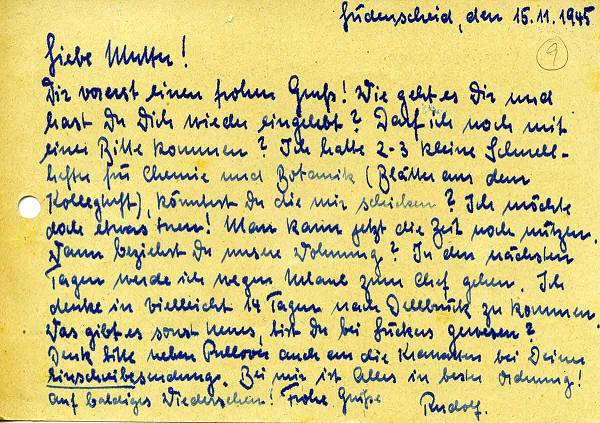 Lüdenscheid, den 15.11.1945
9
Liebe Mutter!
Dir vorerst einen frohen Gruß! Wie geht es Dir und
hast Du Dich wieder eingelebt? Darf ich noch mit
einer Bitte kommen? Ich hatte 2-3 kleine Schnell-
hefter für Chemie und Botanik (Blätter aus dem
Kollegheft), könntest du die mir schicken? Ich möchte
doch etwas tuen! Man kann jetzt die Zeit noch nützen.
Wann beziehst Du unsere Wohnung? In den nächsten
Tagen werde ich wegen Urlaub zum Chef gehen. Ich
denke in vielleicht 14 Tagen nach Dellbrück zu kommen.
Was gibt es sonst neues, bist Du bei Lückens gewesen?
Denk bitte neben Pullover auch an die Krawatten bei Deiner
Einschreibesendung. Bei mir ist Alles in bester Ordnung!
Auf baldiges Wiedersehen! Frohe Grüße
Rudolf.